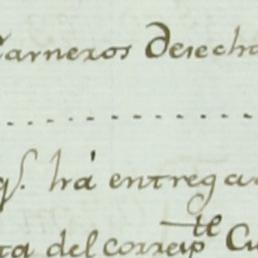 Carneros desecha
q.e ha entrega
ta del correspte Cu